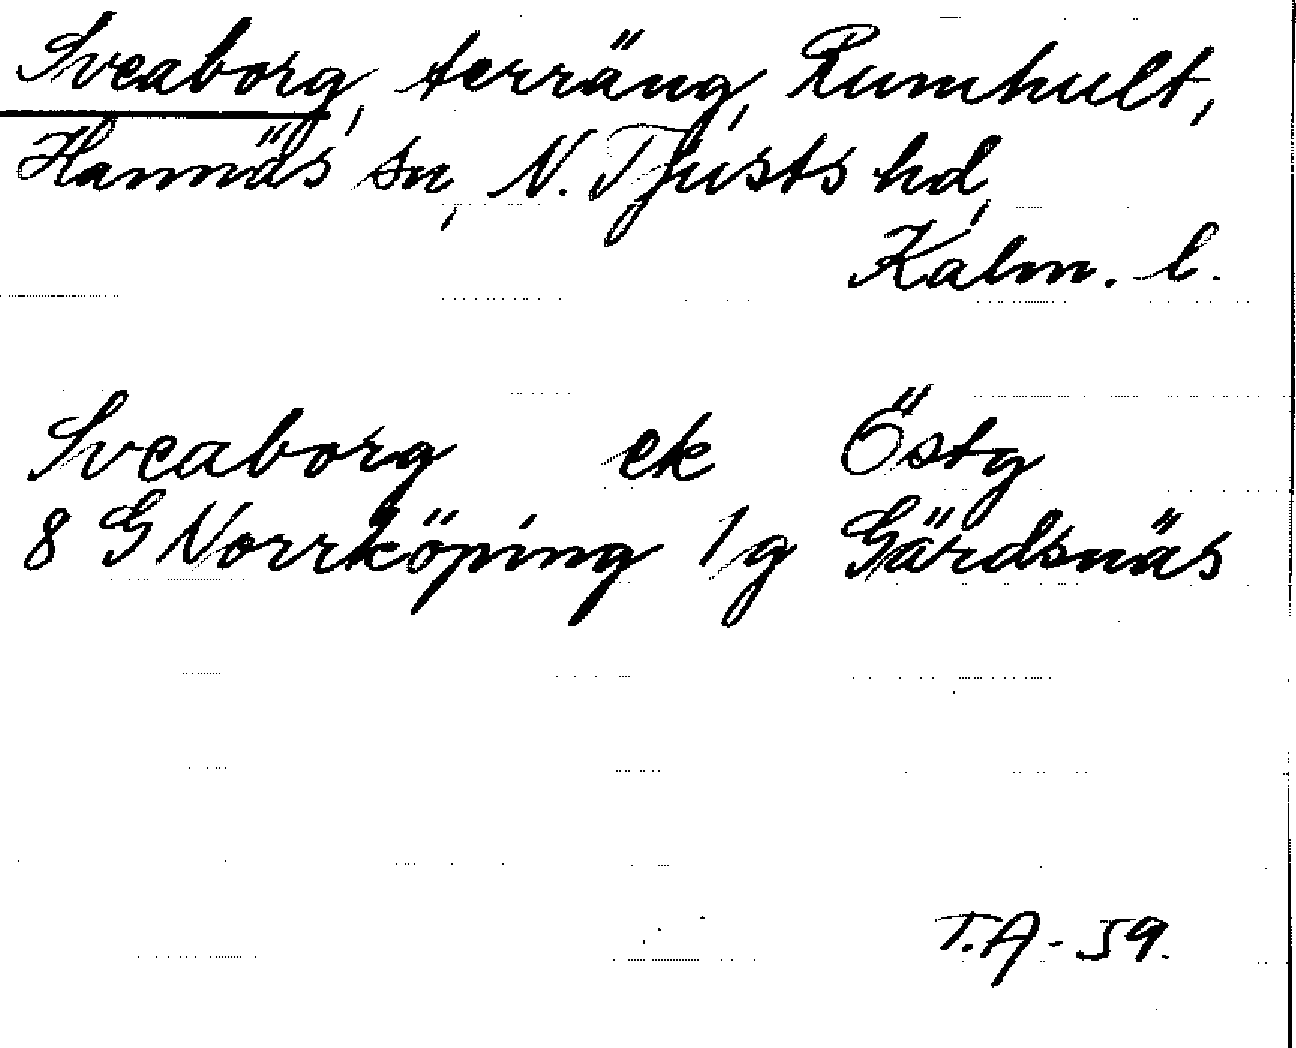 Sveaborg, terräng, Rumhult,
Hannäs sn, N. Tjusts hd,
Kalm. l.
Sveaborg ek Östg
8 G Norrköping 1g Gärdsnäs
T.A - 59.